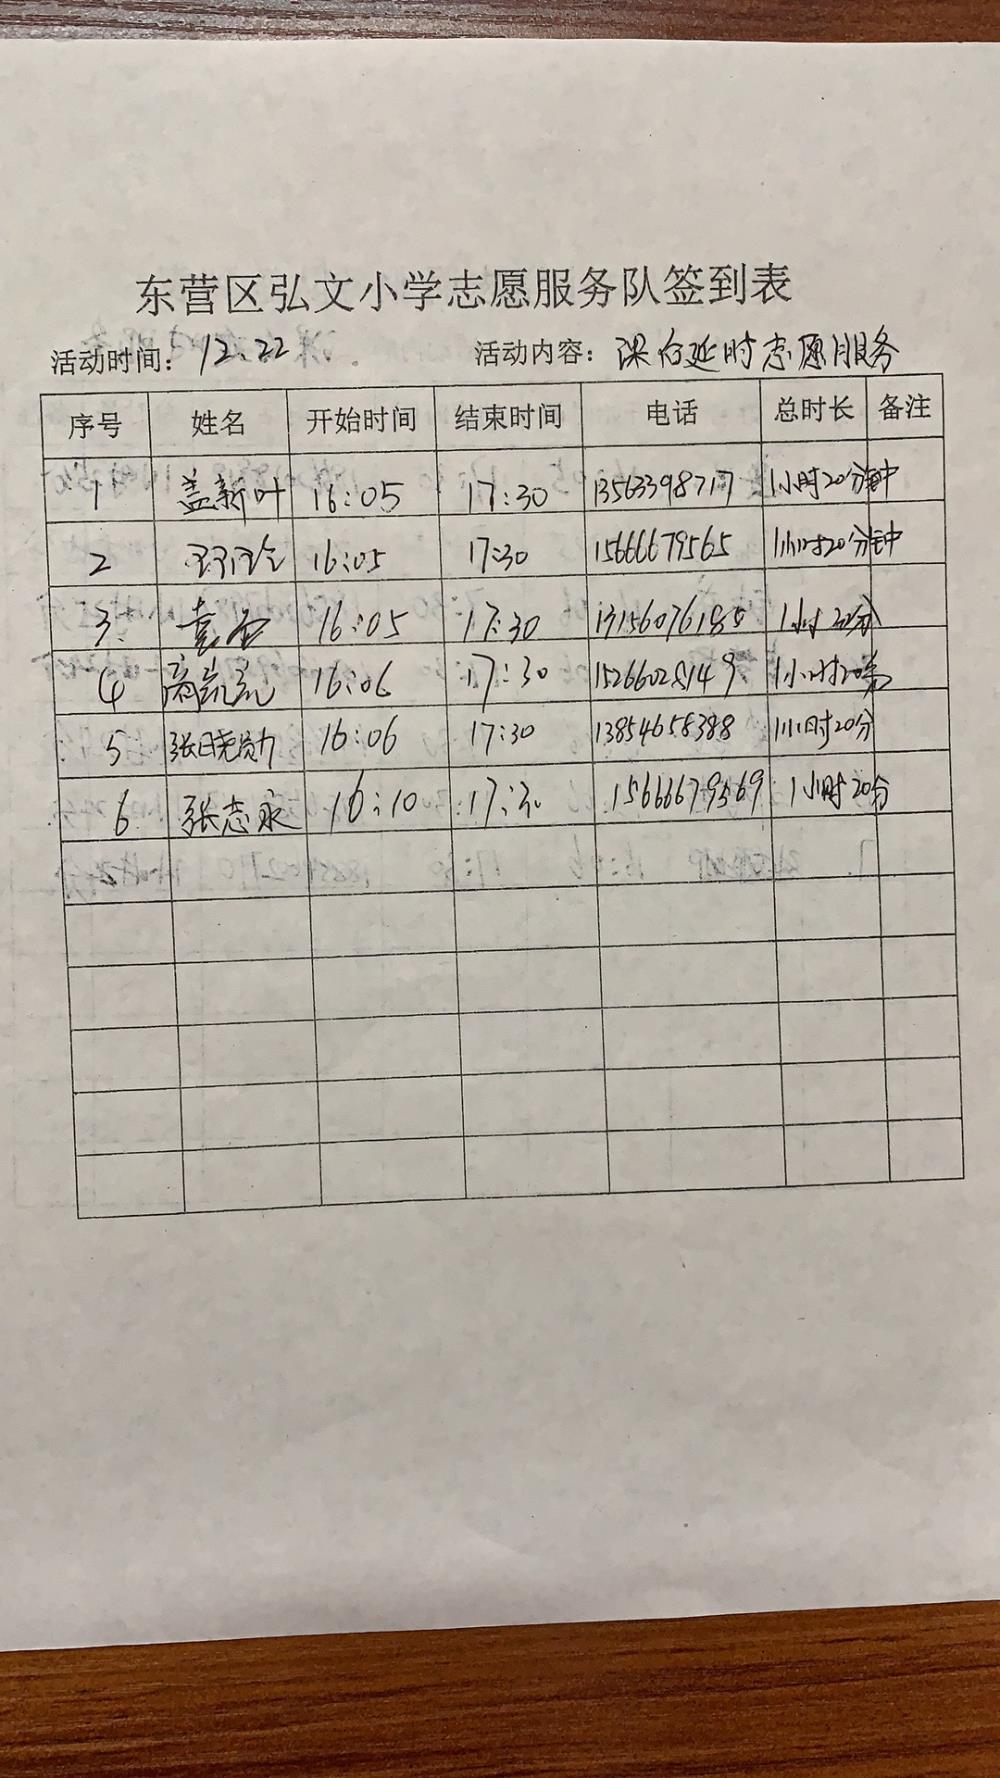 东营区弘文小学志愿服务队签到表
活动时间：12.22 活动内容：课后延时志愿服务
序号 姓名 开始时间 结束时间 电话 总时长 备注
1 盖新叶 16:05 17:30 13563398717 1小时20分钟
2 16:05 17:30 15666679565 1小时20分钟
3 袁 16:05 17:30 13156076185 1小时20分
4 16:06 17:30 15266028149 1小时20分
5 张晓 16:06 17:30 13854658388 1小时20分
6 张志永 16:10 17:30 15666679569 1小时20分